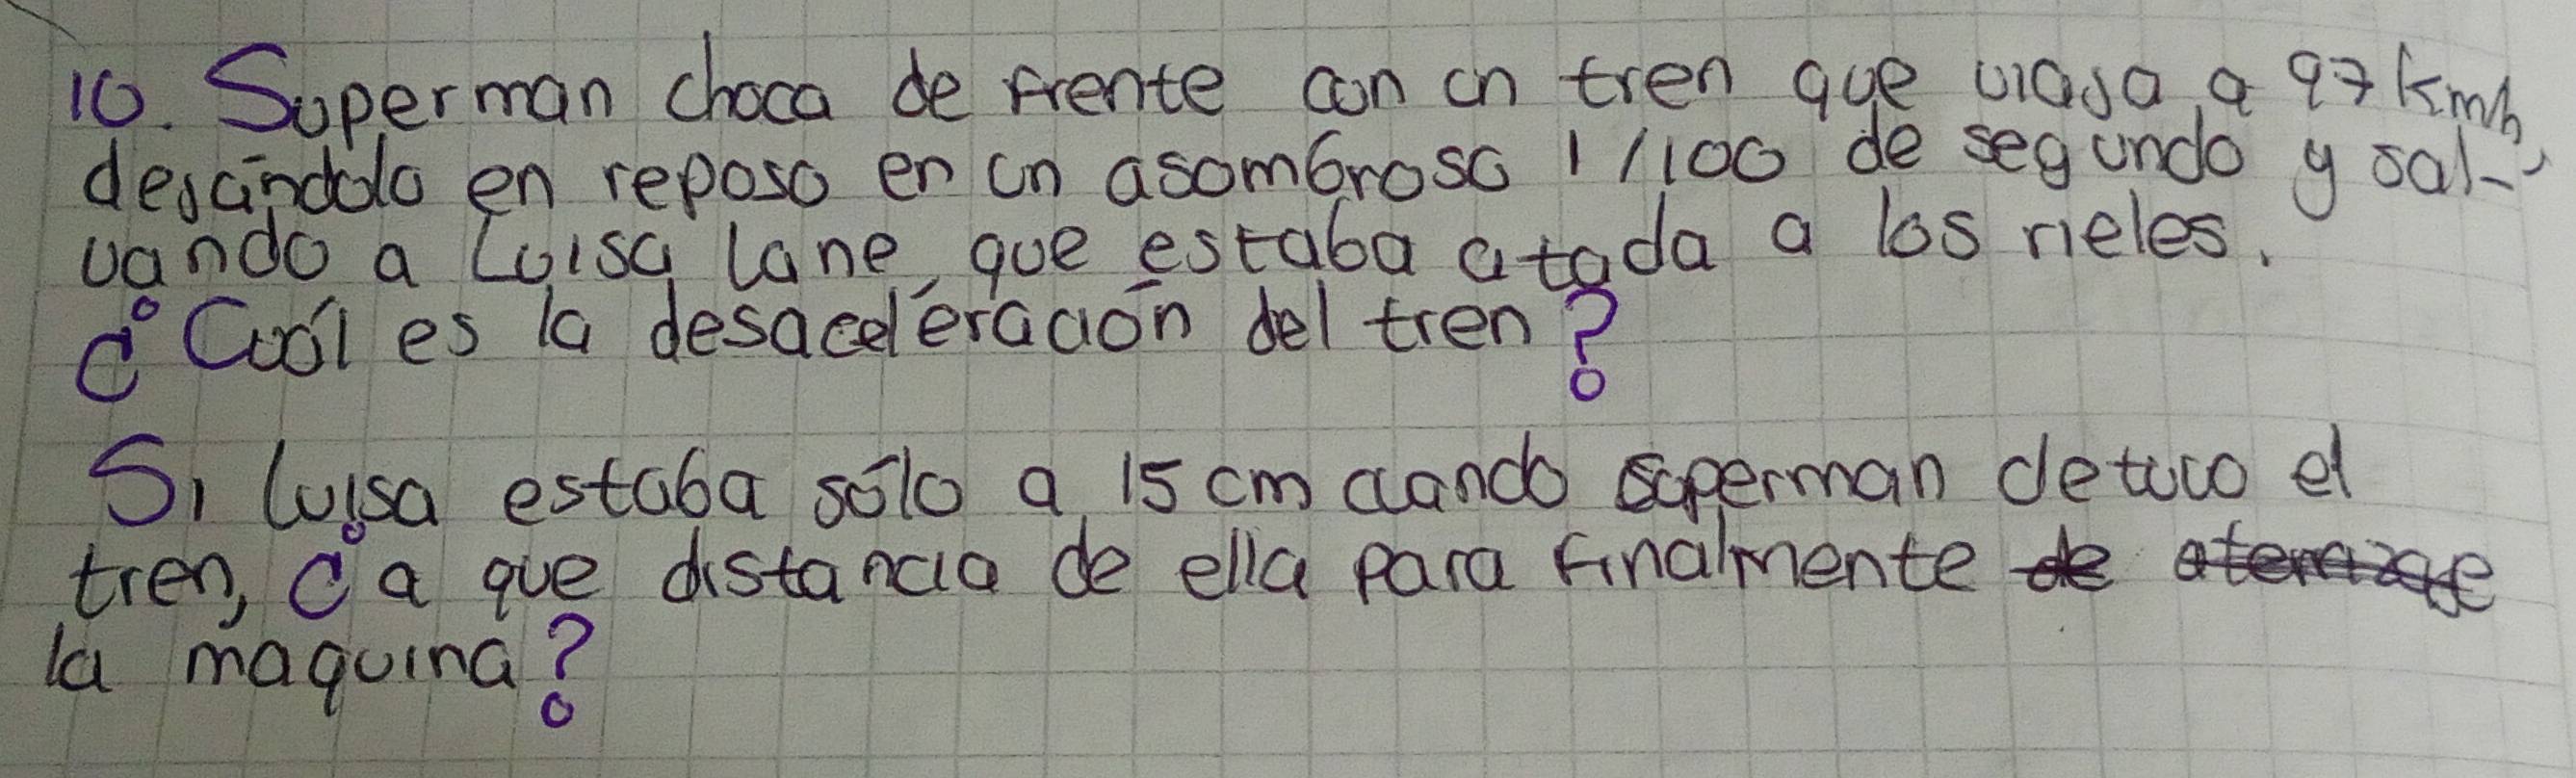 10. Superman choca de frente con un tren que viaja a 97 km/h,
dejándolo en reposo en un asombroso 1/100 de segundo y sal-
vando a Luisa Lane, que estaba atada a los rieles.
¿Cuál es la desaceleración del tren?
Si Luisa estaba sólo a 15 cm cuando superman detuvo el
tren, ¿a que distancia de ella para finalmente de aterrizaje
la maquina?